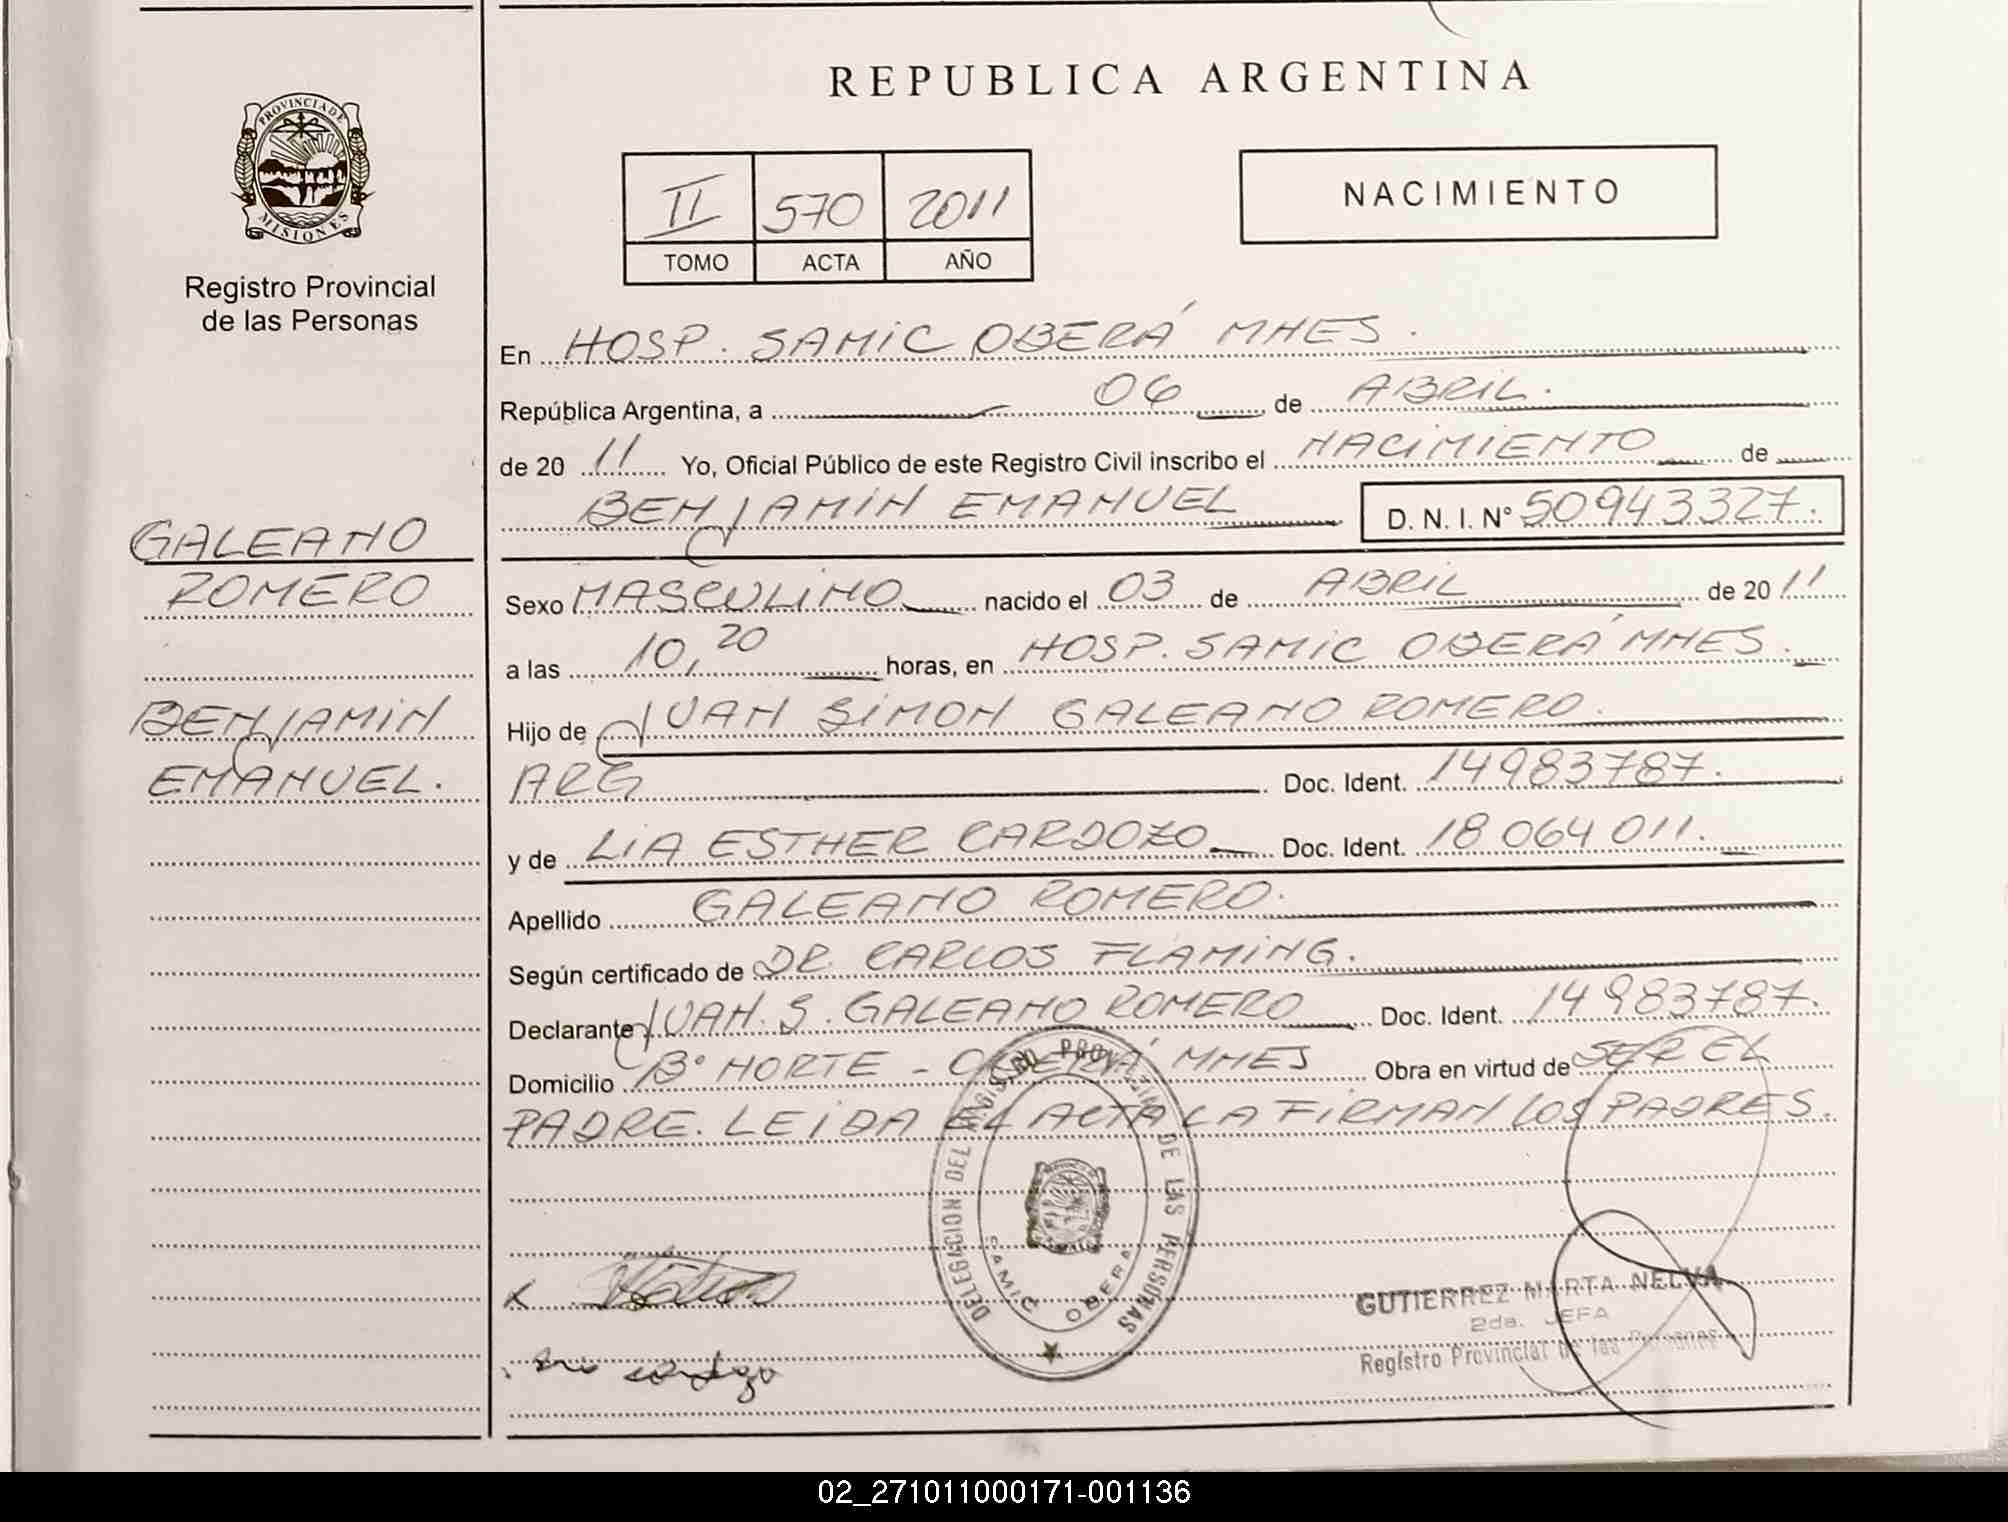 REPUBLICA ARGENTINA
PROVINCIA DE
MISIONES
Registro Provincial
de las Personas
II 570 2011
TOMO ACTA AÑO
NACIMIENTO
En HOSP. SAMIC OBERÁ MNES.
República Argentina, a 06 de ABRIL.
de 20 11 Yo, Oficial Público de este Registro Civil inscribo el NACIMIENTO de
BENJAMIN EMANUEL D. N. I. N° 50943327.
GALEANO
ROMERO
BENJAMIN
EMANUEL.
Sexo MASCULINO nacido el 03 de ABRIL de 20 11
a las 10,20 horas, en HOSP. SAMIC OBERÁ MNES.
Hijo de JUAN SIMON GALEANO ROMERO.
ARG Doc. Ident. 14983787.
y de LIA ESTHER CARDOZO Doc. Ident. 18064011.
Apellido GALEANO ROMERO.
Según certificado de DR. CARLOS FLAMING.
Declarante JUAN. S. GALEANO ROMERO Doc. Ident. 14983787.
Domicilio B° NORTE - OBERÁ MNES Obra en virtud de SER EL
PADRE. LEIDA EL ACTA LA FIRMAN LOS PADRES.
DELEGACION DEL REGISTRO PROVINCIAL DE LAS PERSONAS
SAMIC OBERA
GUTIERREZ MARTA NELVA
2da. JEFA
Registro Provincial de las Personas
02_271011000171-001136